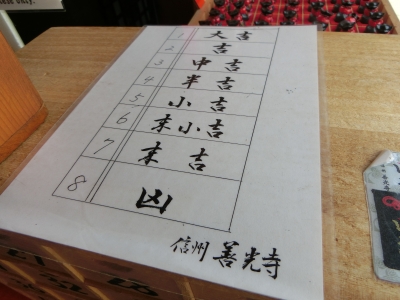 1 大吉
2 吉
3 中吉
4 半吉
5 小吉
6 末小吉
7 末吉
8 凶
信州 善光寺